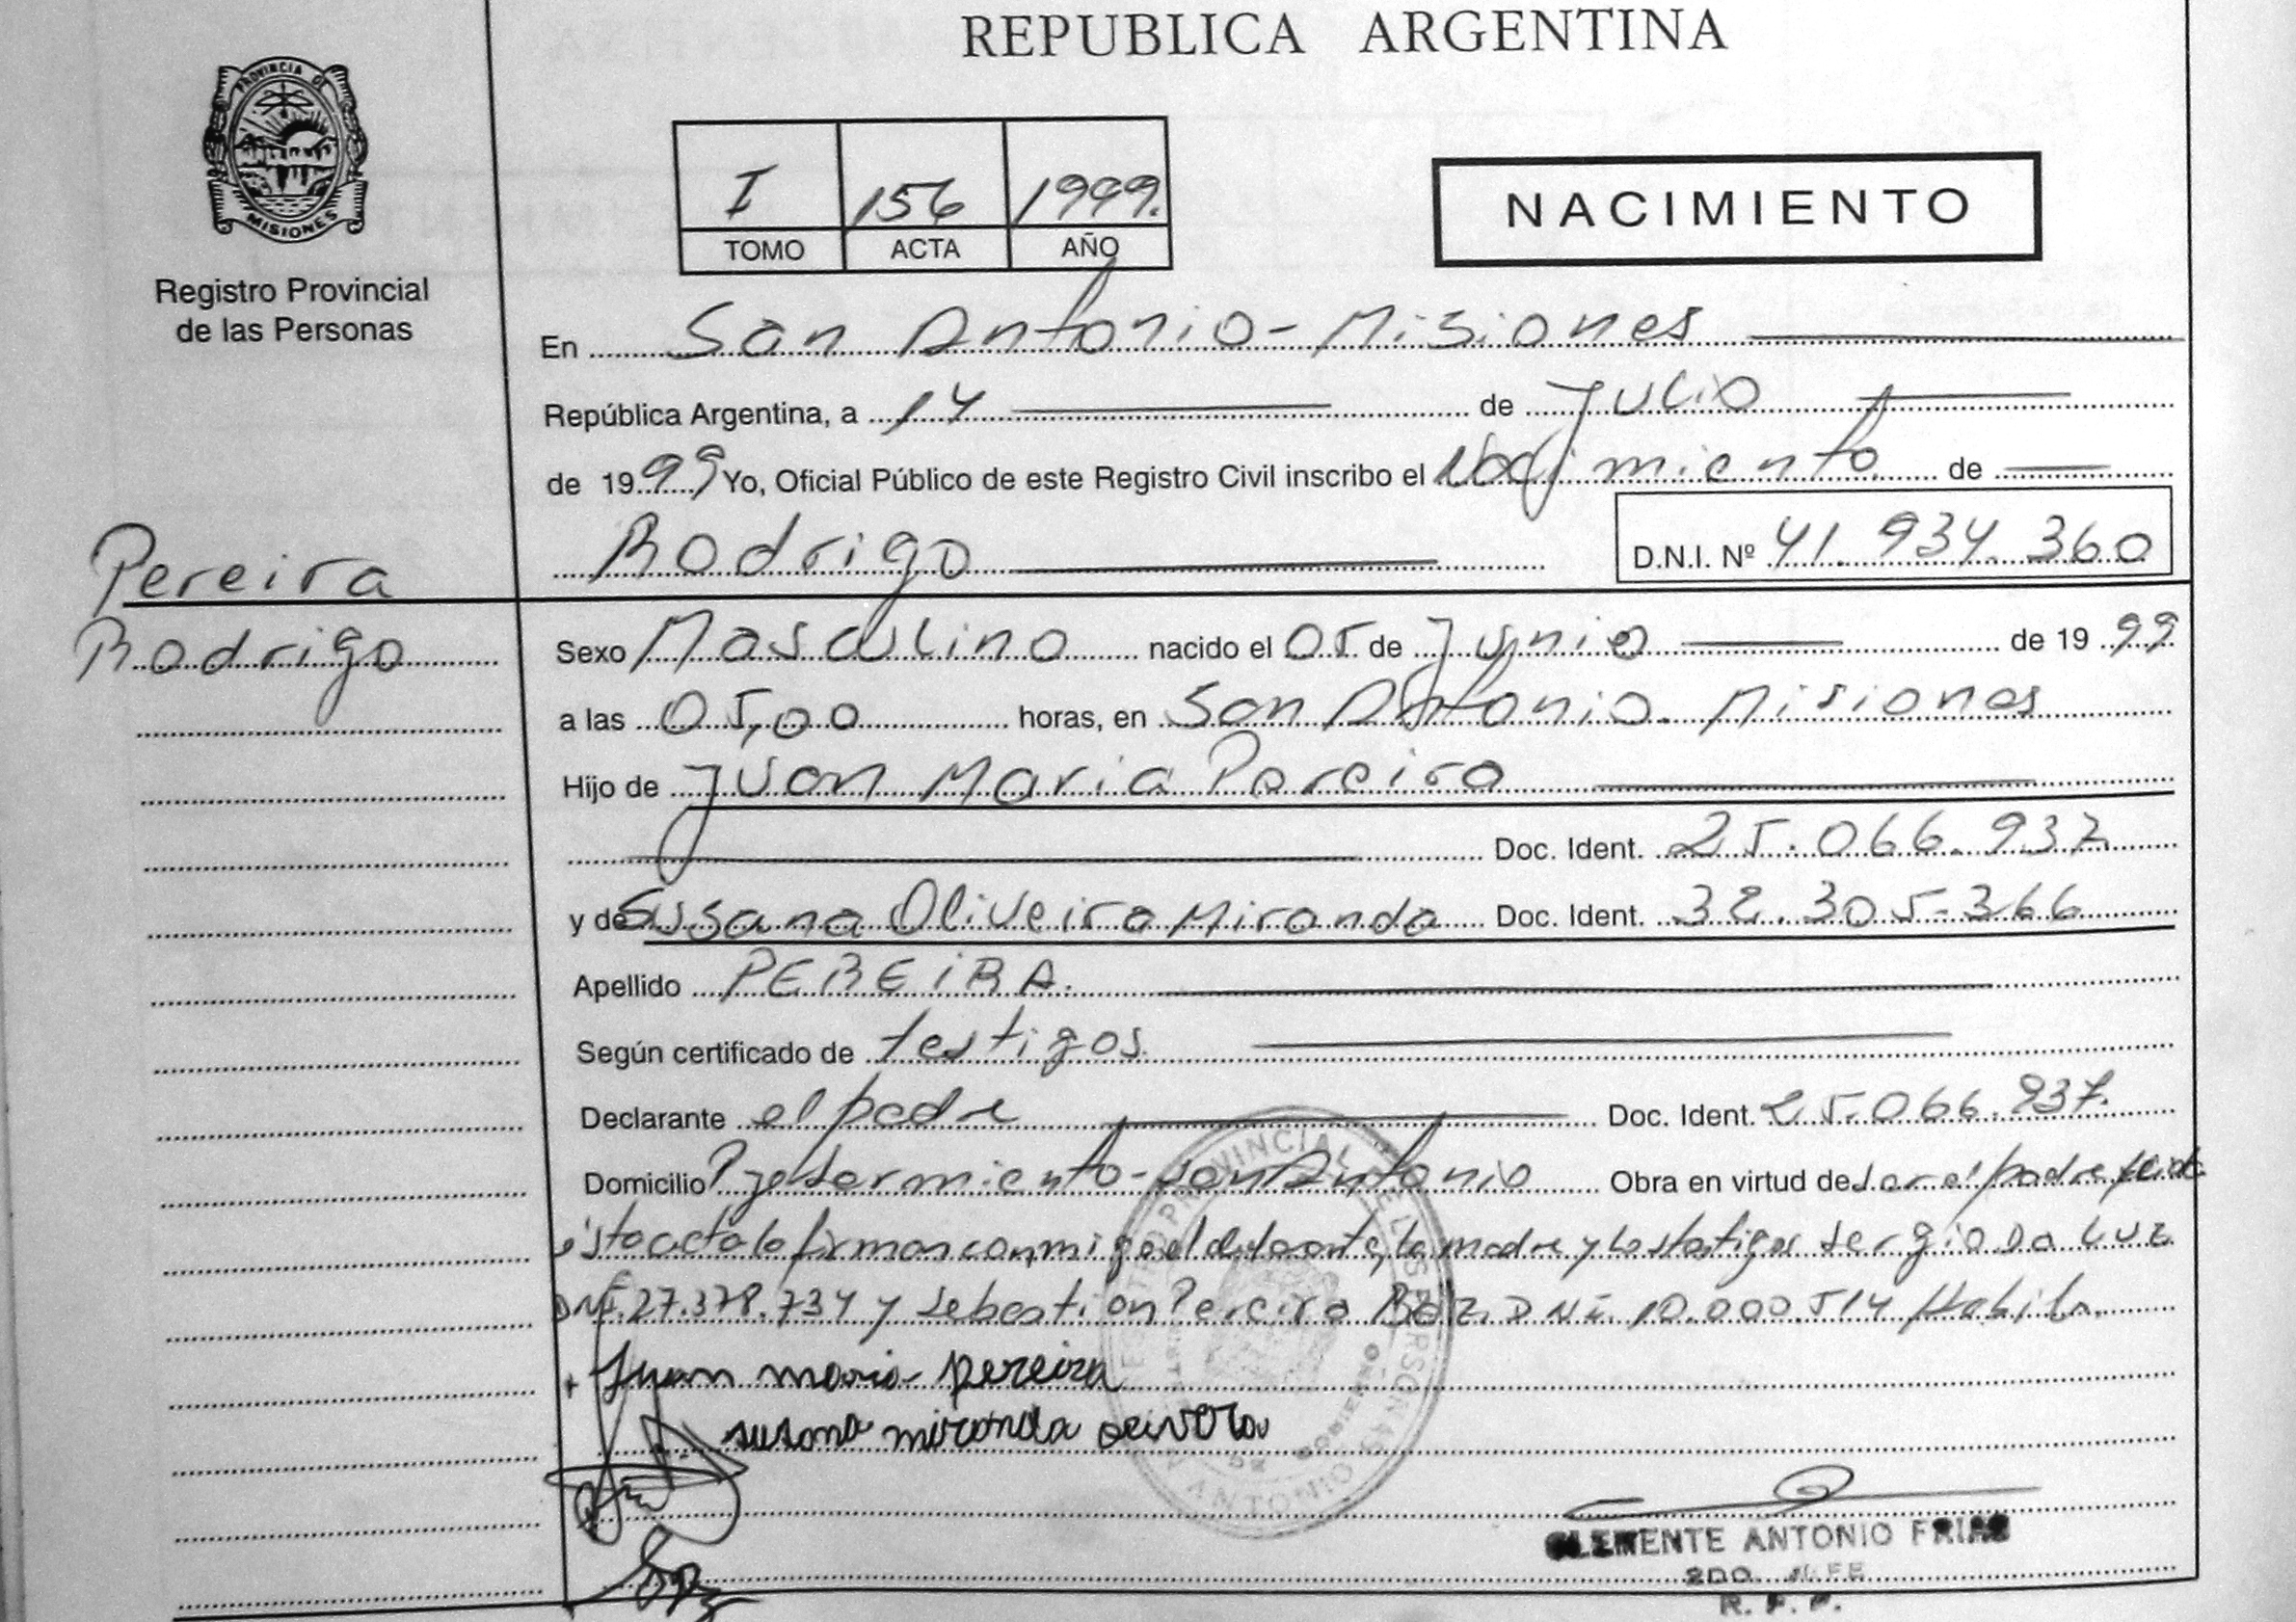 REPUBLICA ARGENTINA
PROVINCIA DE
MISIONES
Registro Provincial
de las Personas
I 156 1999.
TOMO ACTA AÑO
NACIMIENTO
En San Antonio - Misiones
República Argentina, a 14 de Julio
de 1999 Yo, Oficial Público de este Registro Civil inscribo el Nacimiento de
Rodrigo
D.N.I. Nº 41.934.360
Pereira
Rodrigo
Sexo Masculino nacido el 05 de Junio de 1999
a las 05,00 horas, en San Antonio. Misiones
Hijo de Juan Maria Pereira
Doc. Ident. 25.066.937
y de Susana Oliveira Miranda Doc. Ident. 32.305.366
Apellido PEREIRA.
Según certificado de testigos
Declarante el padre Doc. Ident. 25.066.937.
Domicilio Pje Sarmiento - San Antonio Obra en virtud de ser el padre
esta acta la firman conmigo el declarante, la madre y los testigos Sergio Da Luz
DNI. 27.378.734 y Sebastian Pereira DNI. 10.000.514
Juan maria pereira
susana miranda
CLEMENTE ANTONIO FRIAS
2DO. JEFE
R. P. P.